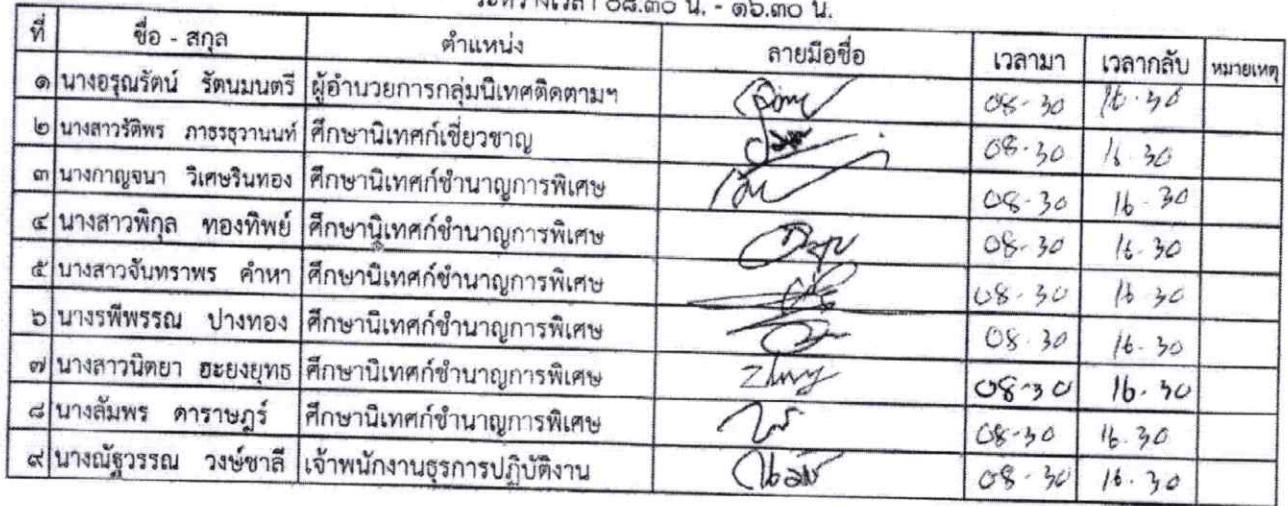 ระหว่างเวลา ๐๘.๓๐ น. - ๑๖.๓๐ น.
ที่ ชื่อ - สกุล ตำแหน่ง ลายมือชื่อ เวลามา เวลากลับ หมายเหตุ
๑ นางอรุณรัตน์ รัตนมนตรี ผู้อำนวยการกลุ่มนิเทศติดตามฯ 08-30 16.30
๒ นางสาวรัติพร ภาธรธุวานนท์ ศึกษานิเทศก์เชี่ยวชาญ 08.30 16.30
๓ นางกาญจนา วิเศษรินทอง ศึกษานิเทศก์ชำนาญการพิเศษ 08-30 16-30
๔ นางสาวพิกุล ทองทิพย์ ศึกษานิเทศก์ชำนาญการพิเศษ 08-30 16.30
๕ นางสาวจันทราพร คำหา ศึกษานิเทศก์ชำนาญการพิเศษ 08-30 16-30
๖ นางรพีพรรณ ปางทอง ศึกษานิเทศก์ชำนาญการพิเศษ 08.30 16-30
๗ นางสาวนิตยา ฮะยงยุทธ ศึกษานิเทศก์ชำนาญการพิเศษ 08-30 16.30
๘ นางลัมพร ดาราษฎร์ ศึกษานิเทศก์ชำนาญการพิเศษ 08-30 16.30
๙ นางณัฐวรรณ วงษ์ชาลี เจ้าพนักงานธุรการปฏิบัติงาน 08-30 16.30